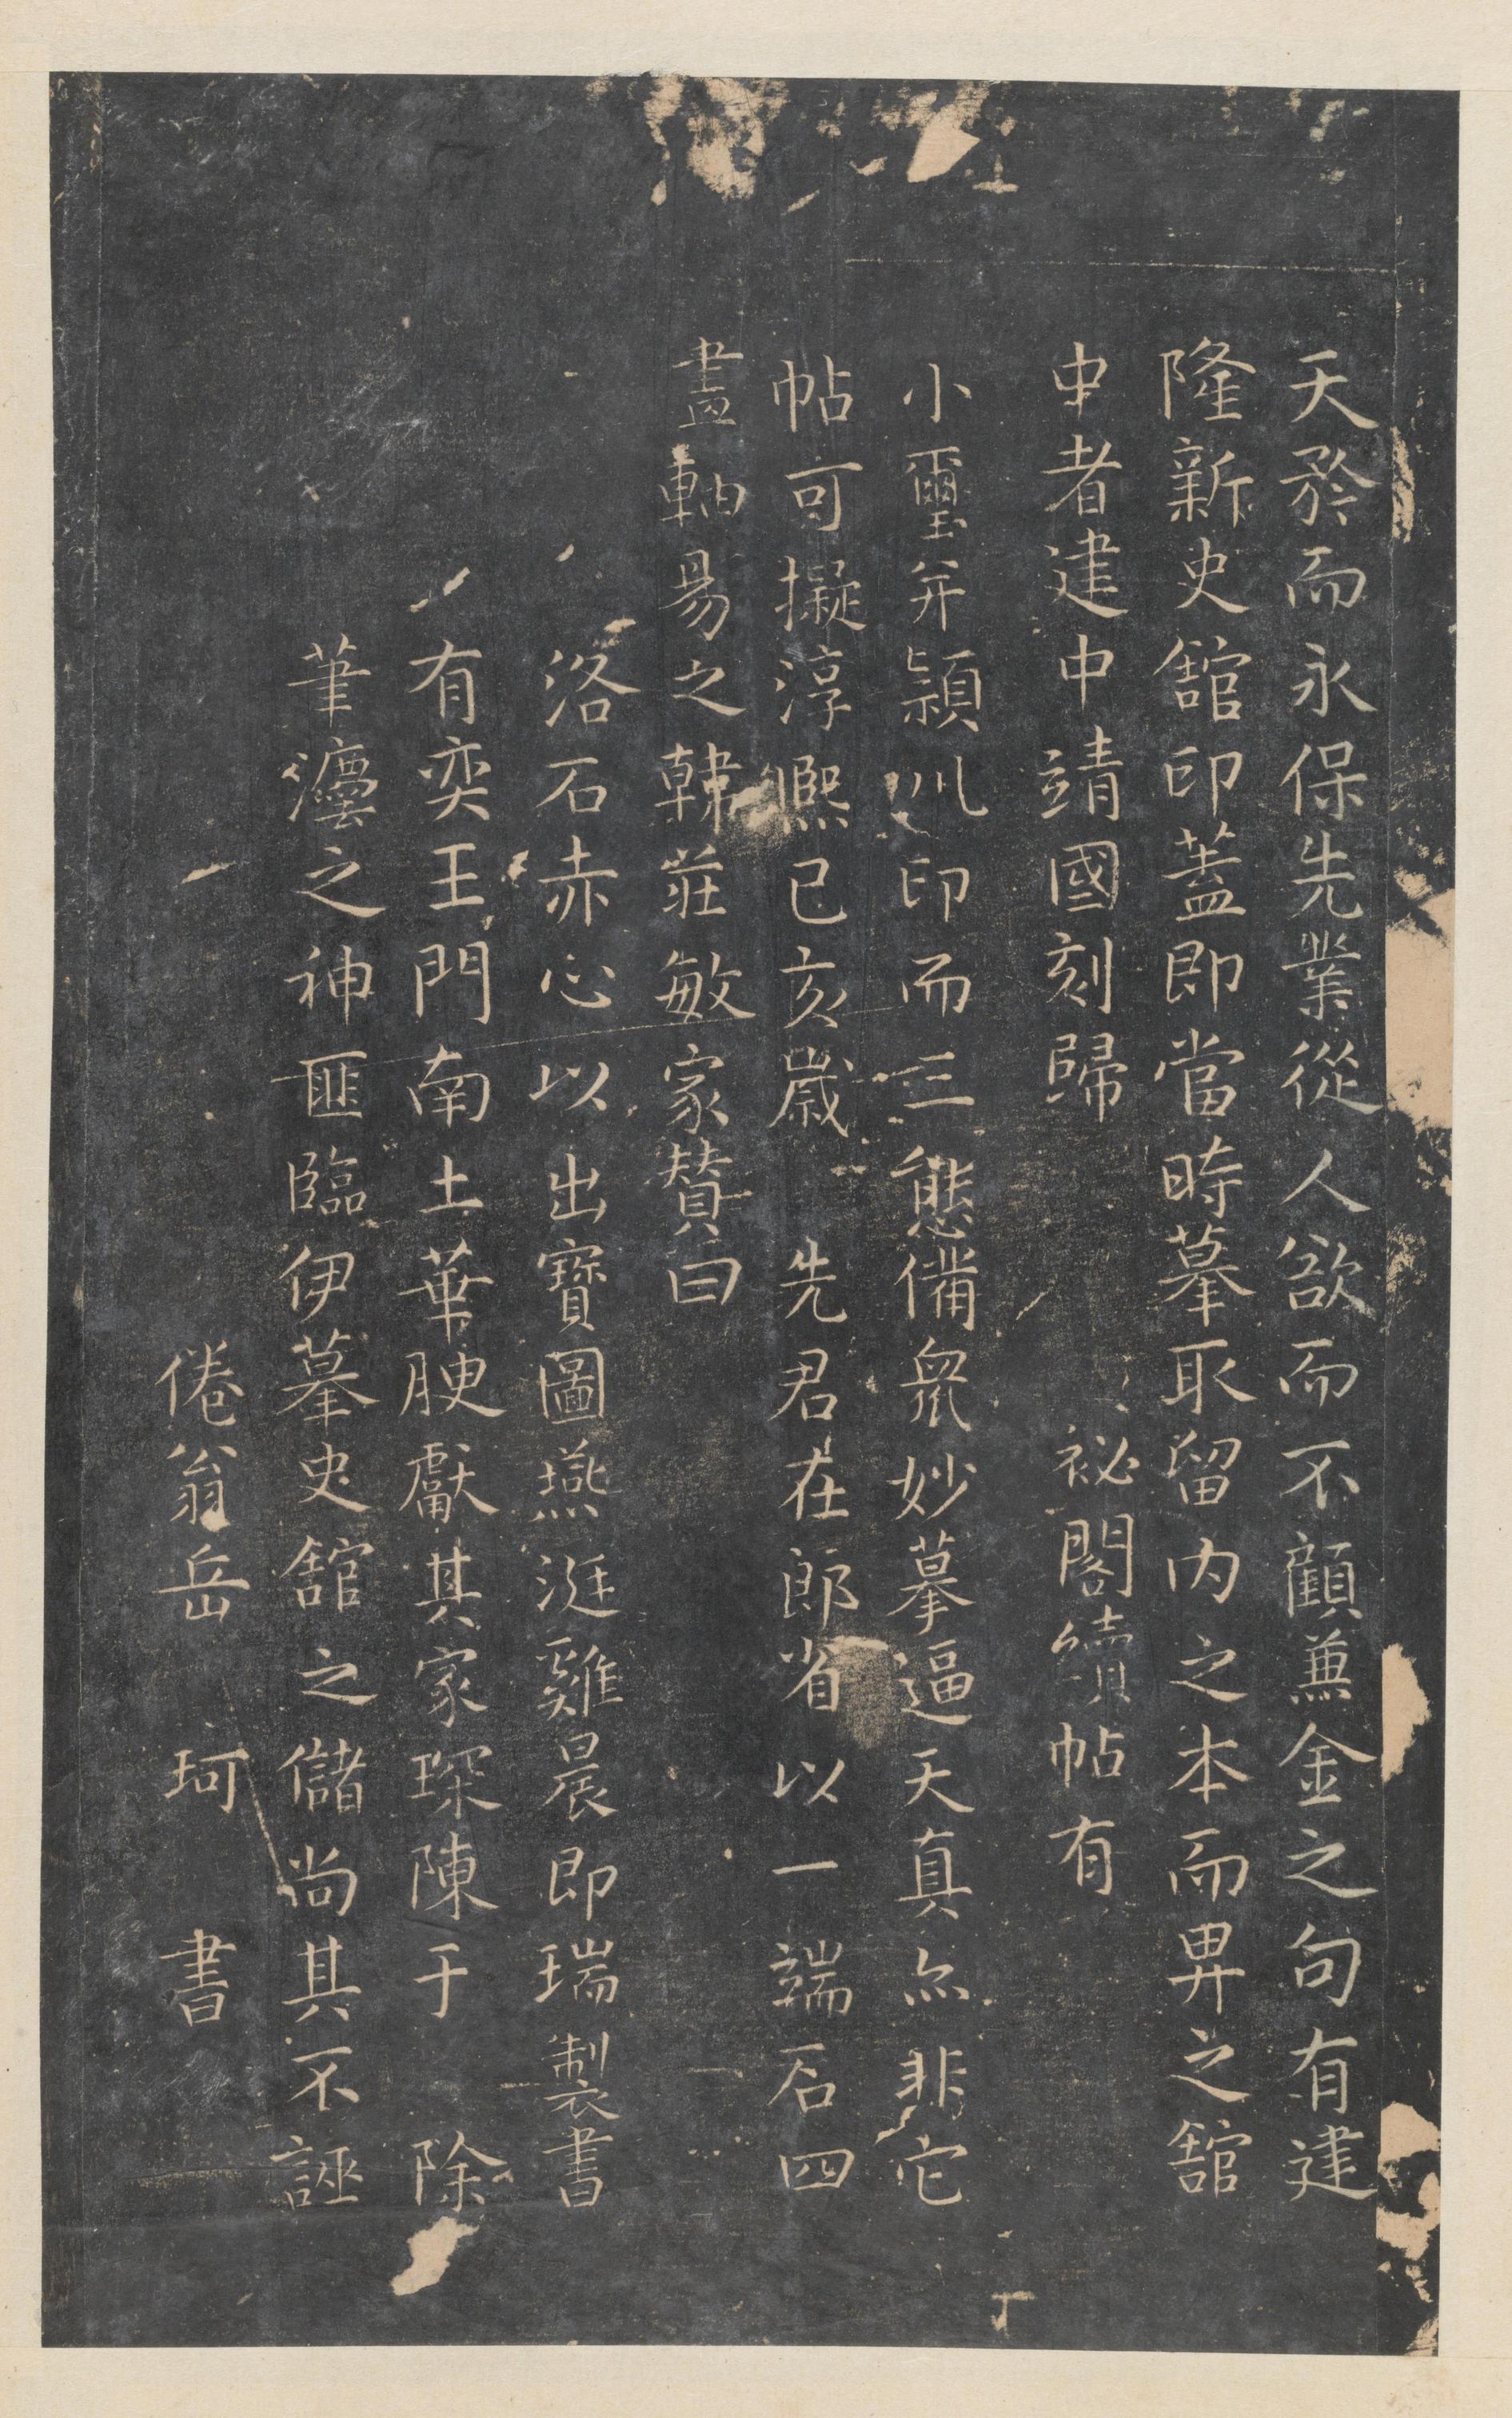 天矜而永保先業從人欲而不顧兼金之句有建
隆新史館印蓋即當時摹取留内之本而畀之館
中者建中靖國刻歸 祕閣續帖有
小璽并潁川印而三態備衆妙摹逼天真亦非它
帖可擬淳熙己亥歲 先君在郎省以一端石四
畫軸易之韓莊敏家贊曰
洛石赤心以出寶圖燕涎雞晨即瑞製書
有奕王門南土華腴獻其家琛陳于 除
筆灋之神匪臨伊摹史館之儲尚其不誣
倦翁岳 珂 書